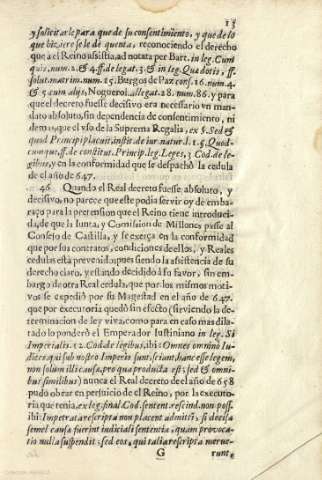 15
y solicitar le para que de su consentimiento, y que de lo
que hiziere se le dè quenta, reconociendo el derecho
que à el Reino assistia, ad notata per Bart. in leg. Cum
quis, num. 2. & 4. ff. de legat. 3. & in leg. Quæ dotis, ff.
solut. matrim. num. 25. Burgos de Paz cons. 16. num. 4.
& 5. cum alijs, Noguerol. allegat. 28. num. 86. y para
que el decreto fuesse decisivo era necessario vn man-
dato absoluto, sin dependencia de consentimiento, ni
de mas que el vso de la Suprema Regalia, ex §. Sed &
quod Principi placuit instit. de iur. natur. l. 1. §. Quod-
cunque, ff. de constitut. Princip. leg. Leges, 3. Cod. de le-
gibus, y en la conformidad que se despachò la cedula
de el año de 647.
46. Quando el Real decreto fuesse absoluto, y
decisivo, no parece que este podia servir oy de emba-
raço para la pretension que el Reino tiene introduci-
da, de que la Iunta, y Comision de Millones passe al
Consejo de Castilla, y se exerça en la conformidad
que por sus contratos, condiciones de ellos, y Reales
cedulas està prevenido; pues siendo la assistencia de su
derecho claro, y estando decidido à su favor, sin em-
bargo de otra Real cedula, que por los mismos moti-
vos se expediò por su Magestad en el año de 647.
que por executoria quedò sin efecto (sirviendo la de-
terminacion de ley viva, como para en caso mas dila-
tado lo ponderò el Emperador Iustiniano in leg. Si
Imperialis. 12. Cod. de legibus, ibi: Omnes omninò Iu-
dices, qui sub nostro Imperio sunt, sciant hanc esse legem,
non solum illi causæ, pro qua producta est; sed & omni-
bus similibus) nunca el Real decreto de el año de 658
pudo obrar en perjuicio de el Reino, por la executo-
ria que tenia, ex leg. final. Cod. sentent. rescind. non poss.
ibi: Impetrata rescripta non placent admitti, si decisa
semel causa fuerint iudiciali sententia, quam provoca-
tio nulla suspendit: sed eos, qui talia rescripta merue-
G
runt,